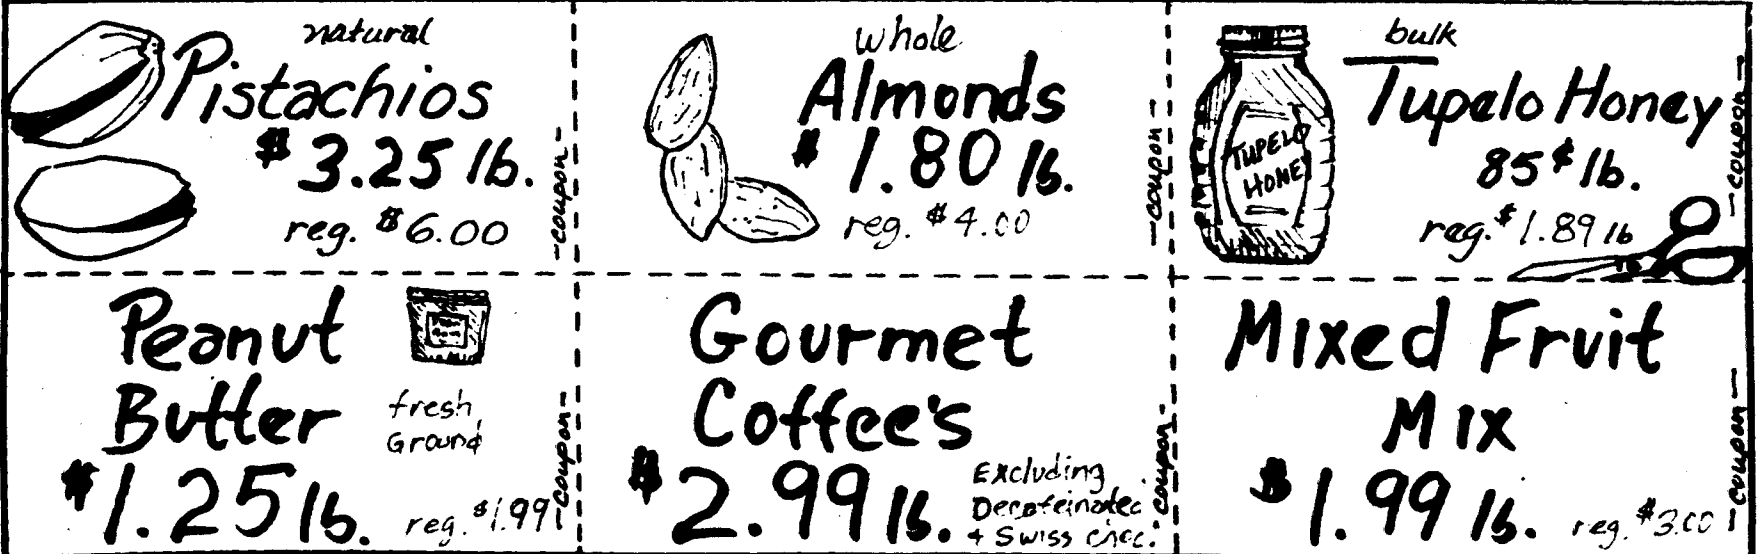 natural
Pistachios
$3.25 lb.
reg. $6.00
—coupon—
whole
Almonds
$1.80 lb.
reg. $4.00
—coupon—
bulk
Tupelo Honey
85¢ lb.
reg. $1.89 lb
—coupon—
TUPELO
HONEY
Peanut
Butter
fresh
Ground
$1.25 lb.
reg. $1.99
—coupon—
Gourmet
Coffee's
$2.99 lb.
Excluding
Decafeinated
+ Swiss choc.
—coupon—
Mixed Fruit
Mix
$1.99 lb.
reg. $3.00
—coupon—